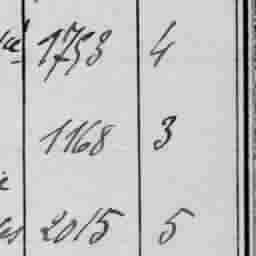 1753 4
1168 3
2015 5